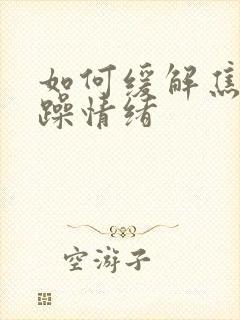 如何缓解焦
躁情绪
空游子